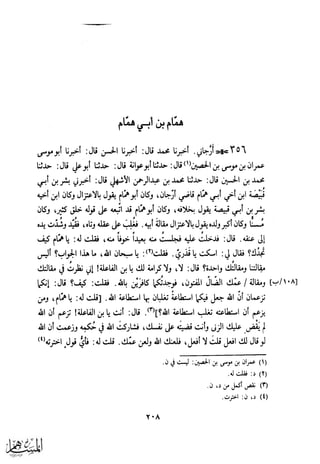 همّام بن أبي همّام
٣٥٦ - أرّجاني. أخبرنا محمد قال: أخبرنا الحسن قال: أخبرنا أبو موسى
عمران بن موسى بن الحصين(١) قال: حدثنا أبو عوانة قال: حدثنا أبو علي قال: حدثنا
محمد بن الحسين قال: حدثنا محمد بن عبدالرحمن الأشهلي قال: أخبرني بشر بن أبي
قبيصة ابن أخي أبي همّام قاضي أرّجان، وكان أبو همّام يقول بالاعتزال وكان ابن أخيه
بشر بن أبي قبيصة يقول بخلافه، وكان أبو همّام قد اتّبعه على قوله خلق كثير، وكان
مُسنّاً وكان أكبر ولده يقول بالاعتزال مقالة أبيه. فغُلِبَ على عقله وتاه، فقُيّد وشُدّت يده
إلى عنقه. قال: فدخلت عليه فجلست منه بعيداً خوفاً منه، فقلت له: يا همّام كيف
تجدك؟ فقال لي: اسكت يا قدَري. فقلت(٢): يا سبحان الله، ما هذا الجواب؟ أليس
مقالتنا ومقالتك واحدة؟ قال: لا، ولا كرامة لك يا بن الفاعلة! إني نظرت في مقالتك
[ب/١٠٨] ومقالة / عمّك الضّال المفتون، فوجدتكما كافرَيْن بالله. فقلت: كيف؟ قال: إنكما
تزعمان أن الله جعل فيكما استطاعة تغلبان بها استطاعة الله. [فقلت له: يا همّام، ومن
يزعم أن استطاعته تغلب استطاعة الله؟](٣). قال: أنت يا بن الفاعلة! تزعم أن الله
لم يقضِ عليك الزنى وأنت قضيته على نفسك، فشاركتَ الله في حُكمه وزعمت أن الله
لو قال لك افعل قلتَ لا أفعل، فلعنك الله ولعن عمك. قلت له: فأيّ قول اخترته(٤)
(١) عمران بن موسى بن الحصين: ليست في ن.
(٢) د: فقلت له.
(٣) نقص أكمل من د، ن.
(٤) د، ن: اخترت.
٢٠٨